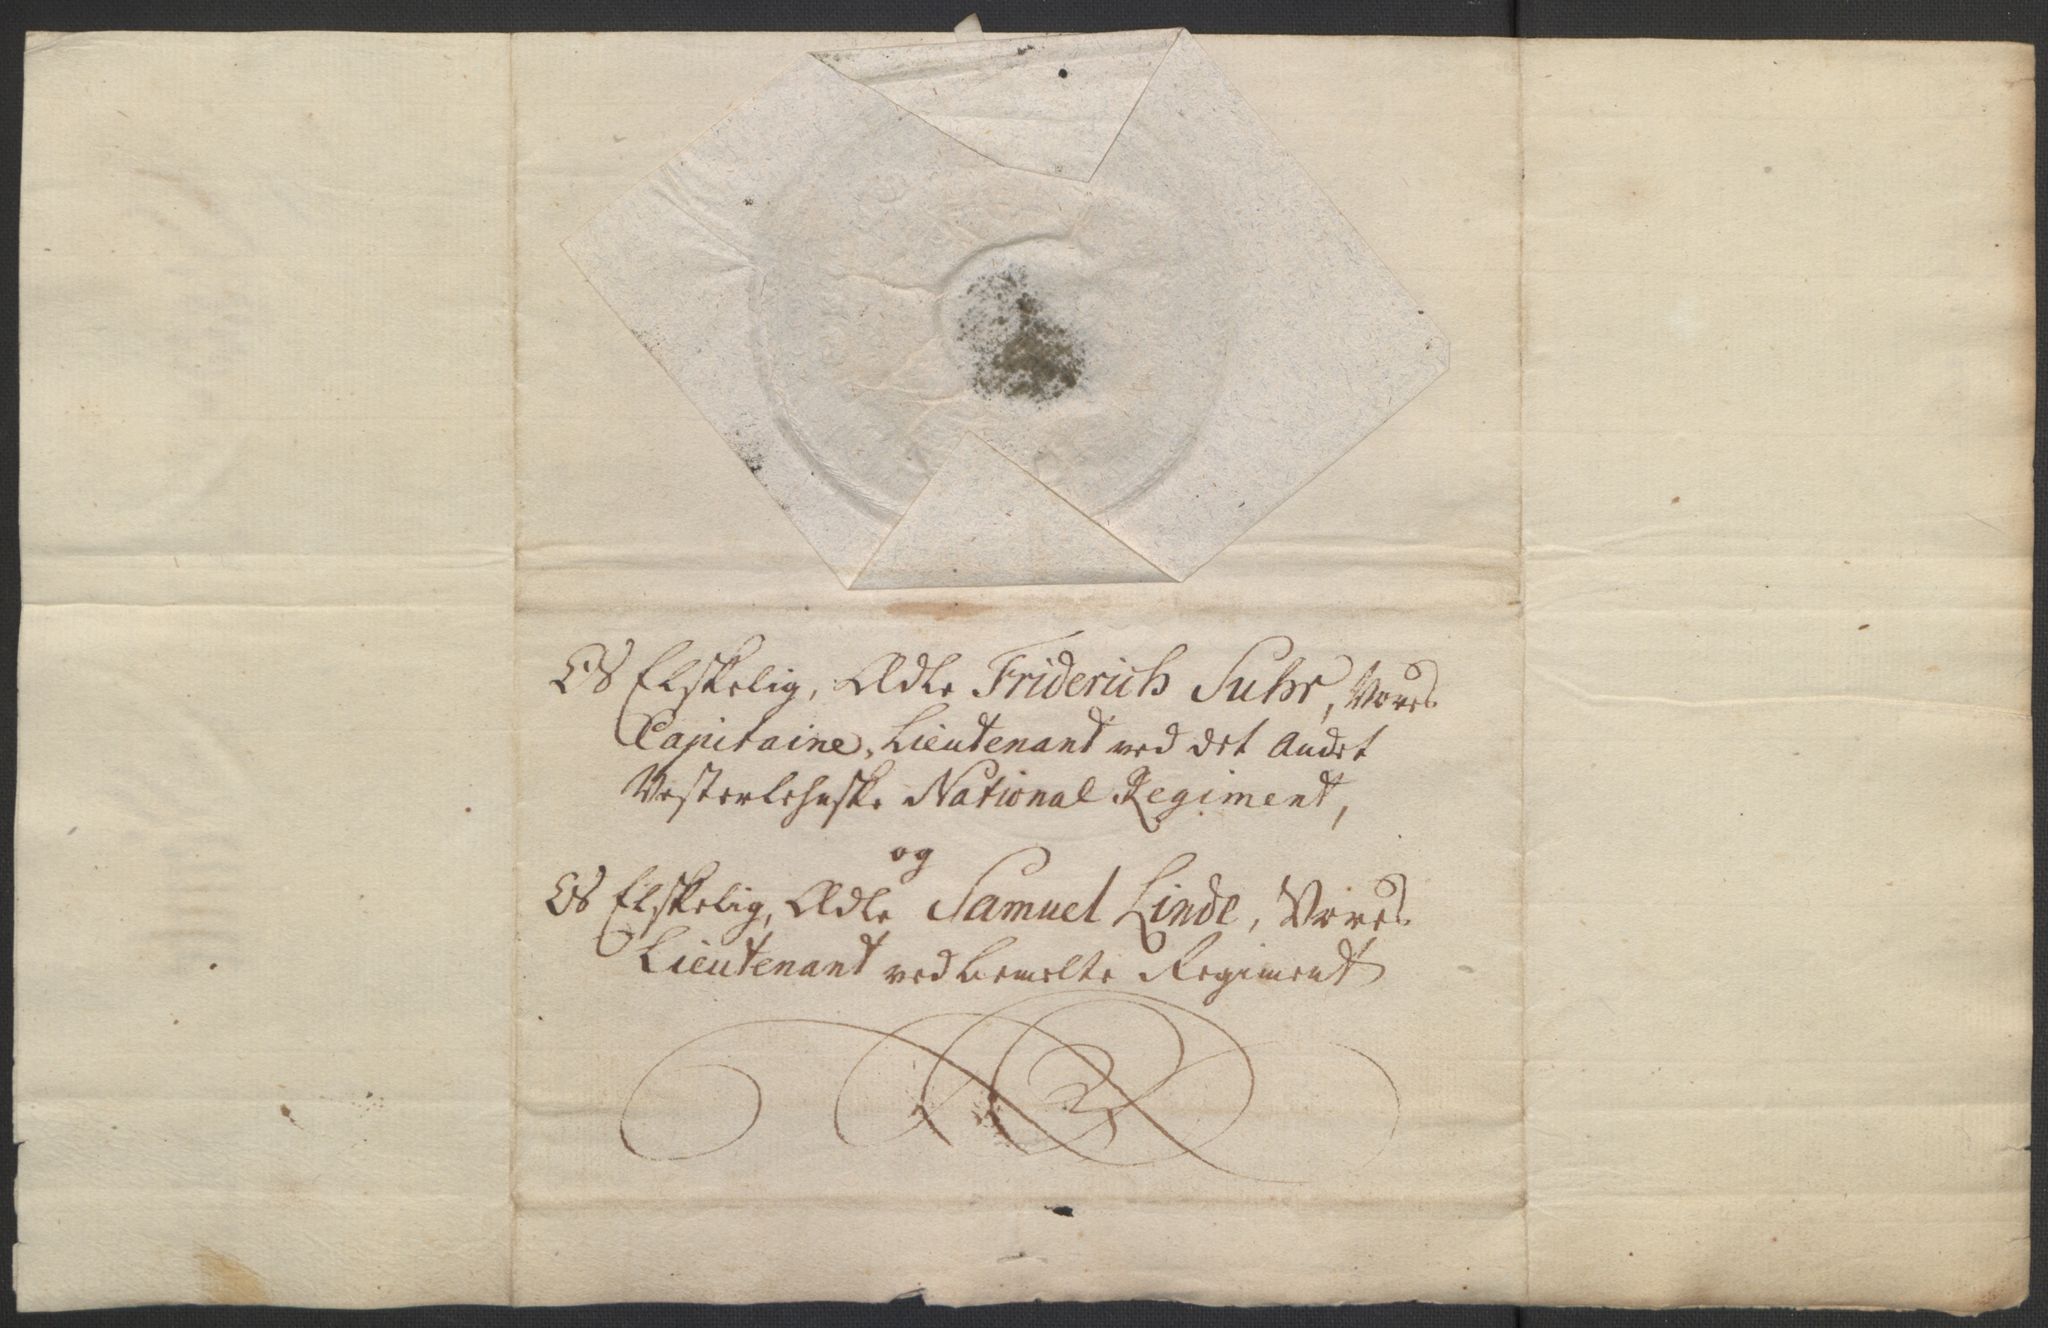 Os Elskelig, Ædle Friderich Suhr, Vores
Capitaine, Lieutenant ved det Andet
Vesterlehnske National Regiment,
og
Os Elskelig, Ædle Samuel Linde, Vores
Lieutenant ved bemelte Regiment